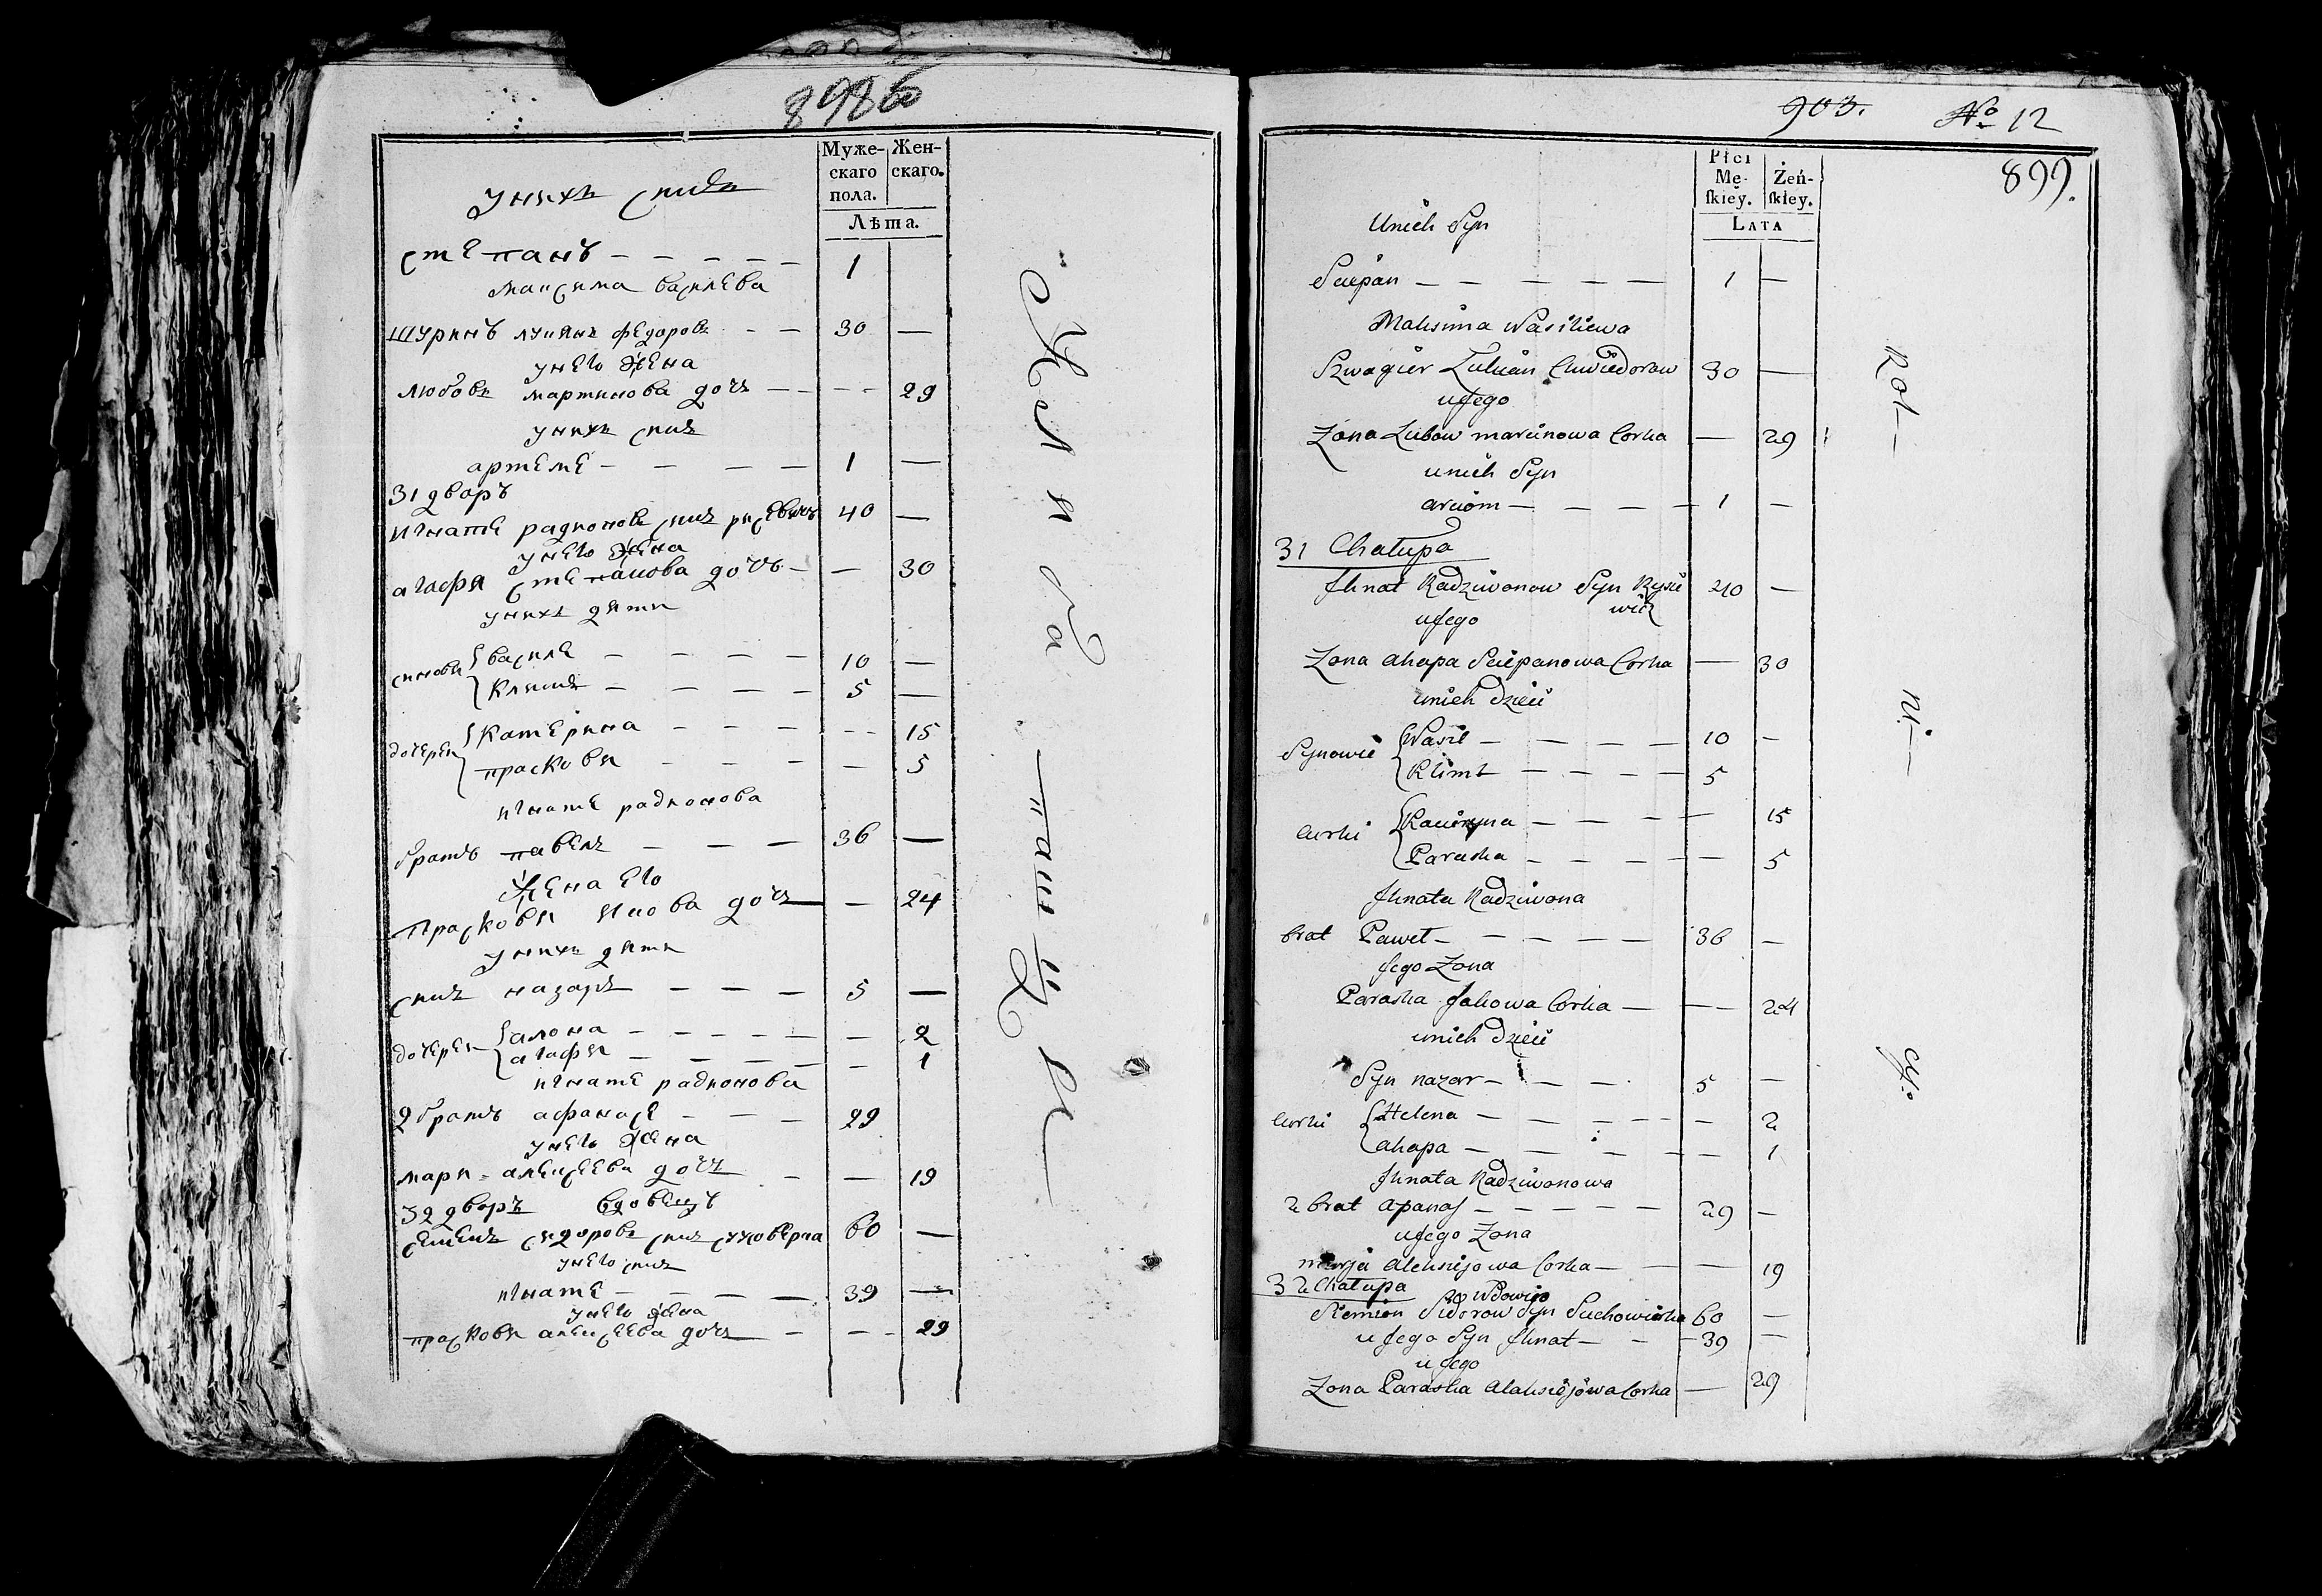 898 об
Муже-
скаго
пола.
Жен-
скаго.
Лѣта.
у нихъ синъ
степанъ — — — — — 1
максима василева
шуринъ лукянъ федоровъ — — 30 —
у нево жена
любовъ мартинова дочъ — — — 29
у нихъ синъ
артеме — — — — 1 —
31 дворъ
игнате радионовъ синъ рисевичъ 40 —
у нево жена
агафя степанова дочъ — — 30
у нихъ дяти
синовя { василе — — — — 10 —
{ климъ — — — — 5 —
дочеря { катерина — — — — — 15
{ прасковя — — — — 5
игнате радионова
братъ павелъ — — — 36 —
жена ево
прасковя якова дочъ — — 24
у нихъ дяти
синъ назаръ — — — 5 —
дочеря { алона — — — — — — 2
{ агафя — — — — — 1
игнате радионова
2 братъ афанасе — — — 29
у нево жена
маря алексеева дочъ — — 19
32 дворъ вдовецъ
семенъ сидоровъ синъ суховерка 60 —
у нево синъ
игнате — — — — 39 —
у нево жена
прасковя алексеева дочъ — — — 29
903. No 12
899.
Płci
Mę-
ſkiey.
Żeń-
ſkiey.
LATA
Unich Syn
Sciepan — — — — — 1 —
Maksima Wasiliewa
Szwagier Lukian Chwiedorow 30 —
uJego
Zona Lubow marcinowa Corka — 29
unich Syn
arciom — — — — 1 —
31 Chałupa
Jhnat Radziwonow Syn Rysie 40 —
wicz
uJego
Zona ahapa Sciepanowa Corka — 30
unich Dzieci
Synowie { Wasil — — — — 10 —
{ Klimt — — — — 5
Curki { Kacieryna — — — — 15
{ Paraska — — — — — 5
Jhnata Radziwona
brat Paweł — — — — — 36 —
Jego Zona
Paraska Jakowa Corka — — 24
unich Dzieci
Syn nazar — — — 5 —
Curki { Helena — — — — — 2
{ ahapa — — — — — 1
Jhnata Radziwonowa
2 brat apanaſ — — — — — 29 —
uJego Zona
marja aleksiejowa Corka — — 19
32 Chałupa
Wdowiec
Siemion Sidorow Syn Suchowierka 60 —
uJego Syn Jhnat — — 39 —
uJego
Zona Paraska alaksiejowa Corka — 29
Rol—
ni—
cy.